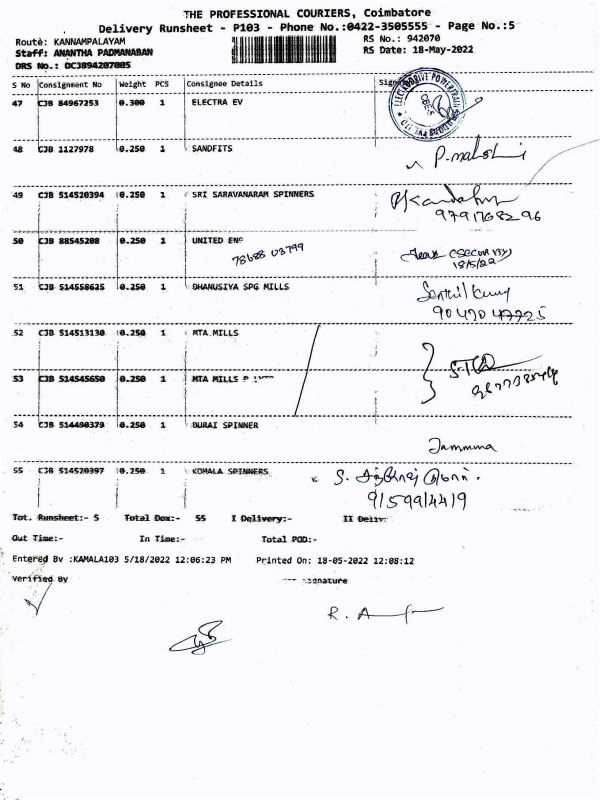 THE PROFESSIONAL COURIERS, Coimbatore
Delivery Runsheet - P103 - Phone No.:0422-3505555 - Page No.:5
Route: KANNAMPALAYAM RS No.: 942070
Staff: ANANTHA PADMANABAN RS Date: 18-May-2022
DRS No.: DCJ894207005
S No Consignment No Weight PCS Consignee Details
47 CJB 84967253 0.300 1 ELECTRA EV
48 CJB 1127978 0.250 1 SANDFITS
49 CJB 514520394 0.250 1 SRI SARAVANARAM SPINNERS
9791768296
50 CJB 88545208 0.250 1 UNITED ENG
78688 03799
(SECURITY)
18/5/22
51 CJB 514558625 0.250 1 DHANUSIYA SPG MILLS
90470 47725
52 CJB 514513130 0.250 1 MTA MILLS
53 CJB 514545650 0.250 1 MTA MILLS
54 CJB 514490379 0.250 1 DURAI SPINNER
Jammuna
55 CJB 514520397 0.250 1 KOMALA SPINNERS
9159914419
Tot. Runsheet:- 5 Total Dox:- 55 I Delivery:- II
Out Time:- In Time:- Total POD:-
Entered By :KAMALA103 5/18/2022 12:06:23 PM Printed On: 18-05-2022 12:08:12
Verified By Signature